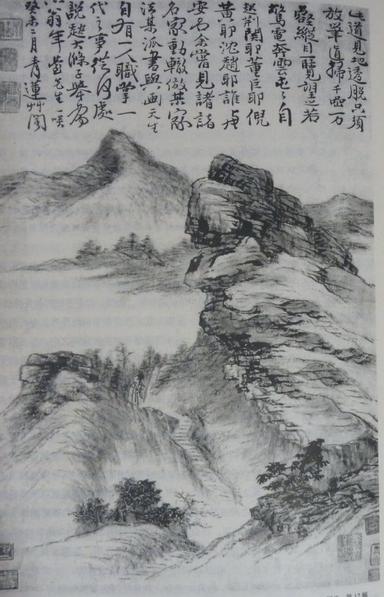 此道見地透脫只須
放筆直掃千巖万
壑縱目一覽望之若
驚電奔雲屯屯自
起荊關耶董巨耶倪
黃耶沈趙耶誰與
安名余嘗見諸
名家動輒倣某家
法某派書與画天生
自有一人職掌一
代之事從何處
說起大滌子舉為
六翁年先生一咲
癸未二月青蓮艸閣